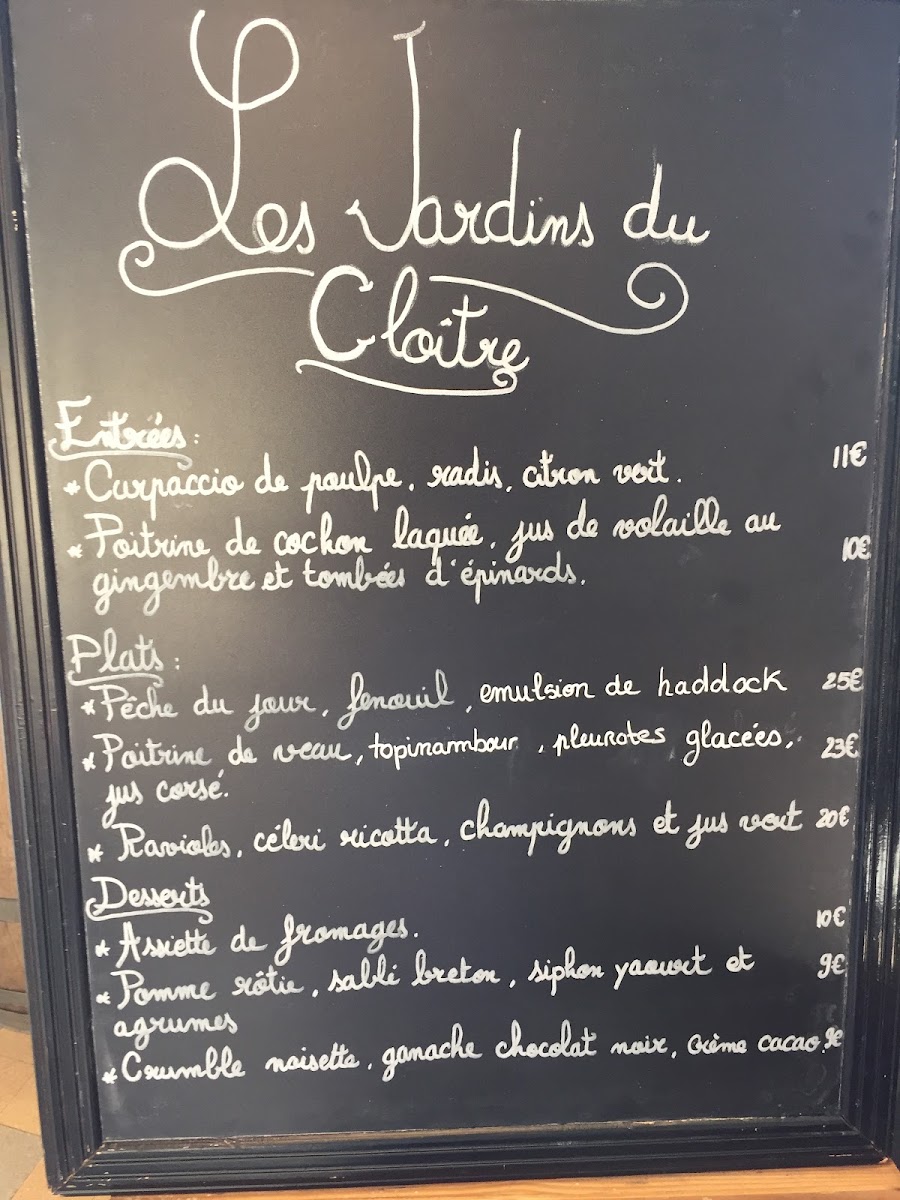 Les Jardins du
Cloître
Entrées :
* Carpaccio de poulpe, radis, citron vert. 11€
* Poitrine de cochon laquée, jus de volaille au
gingembre et tombées d'épinards. 10€
Plats :
* Pêche du jour, fenouil, emulsion de haddock 25€
* Poitrine de veau, topinambour, pleurotes glacées, 23€
jus corsé.
* Ravioles, céleri ricotta, champignons et jus vert 20€
Desserts
* Assiette de fromages. 10€
* Pomme rôtie, sablé breton, siphon yaourt et 9€
agrumes
* Crumble noisette, ganache chocolat noir, crème cacao. 9€